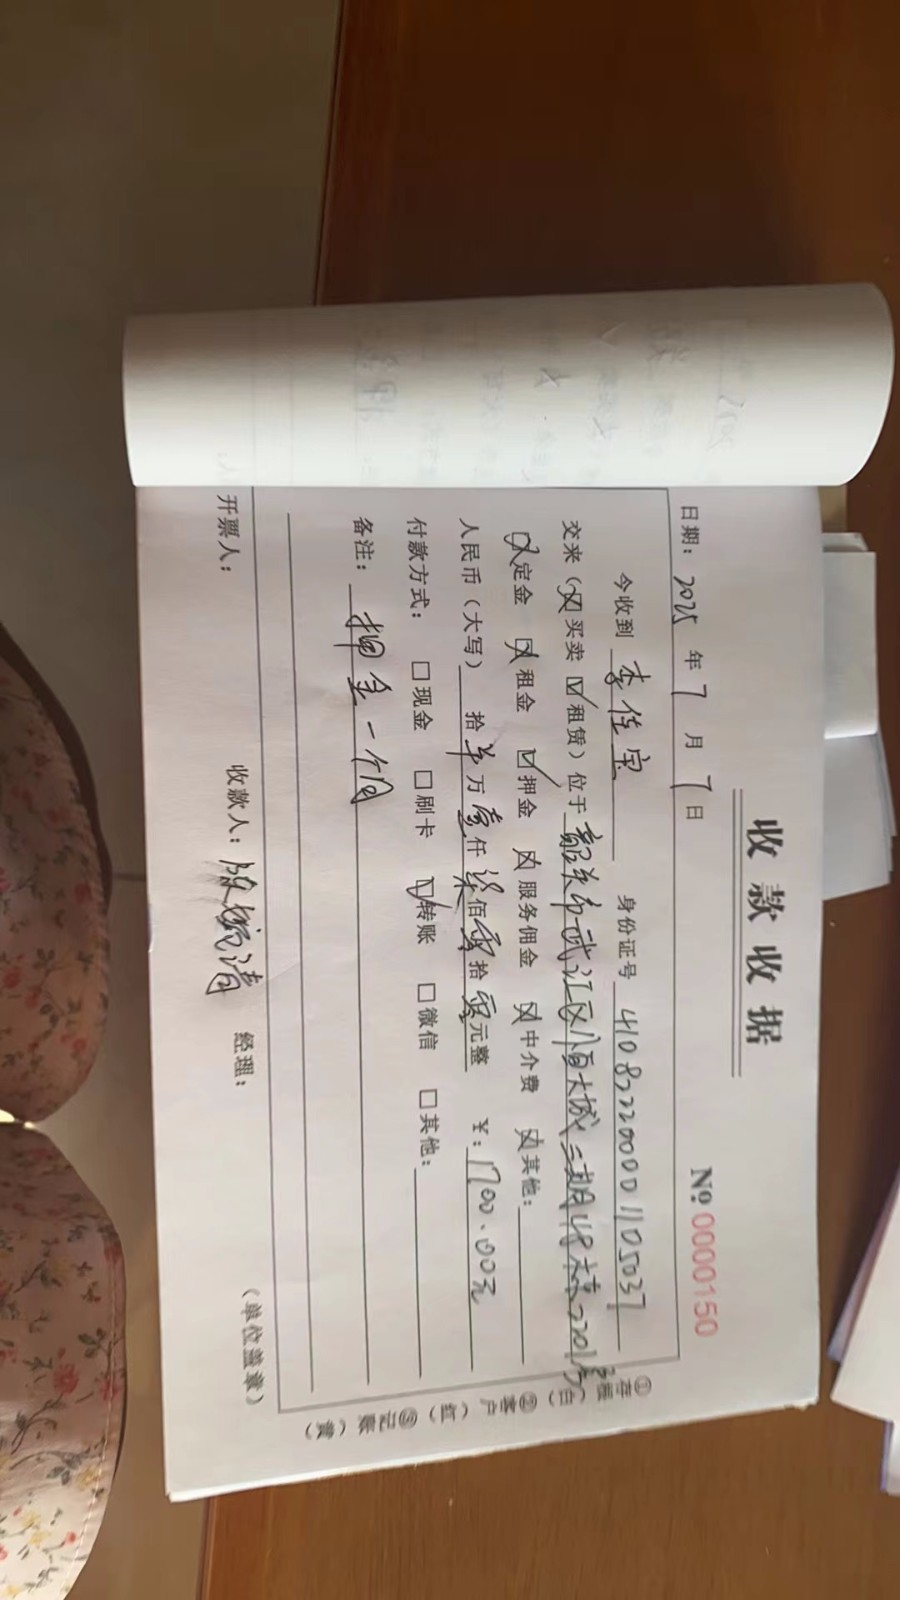 收款收据
日期：2025年7月7日 № 0000150
今收到 李佳宝 身份证号 410822200001105037
交来（☒买卖 ☑租赁）位于 韶关市武江区恒大城三期48栋2201房
☒定金 ☒租金 ☑押金 ☒服务佣金 ☒中介费 ☒其他：
人民币（大写） 拾 万 壹仟柒佰零拾零元整 ￥：1700.00元
付款方式： □现金 □刷卡 ☑转账 □微信 □其他：
备注： 押金一个月
开票人： 收款人： 经理： （单位盖章）
①存根（白）②客户（红）③记账（黄）